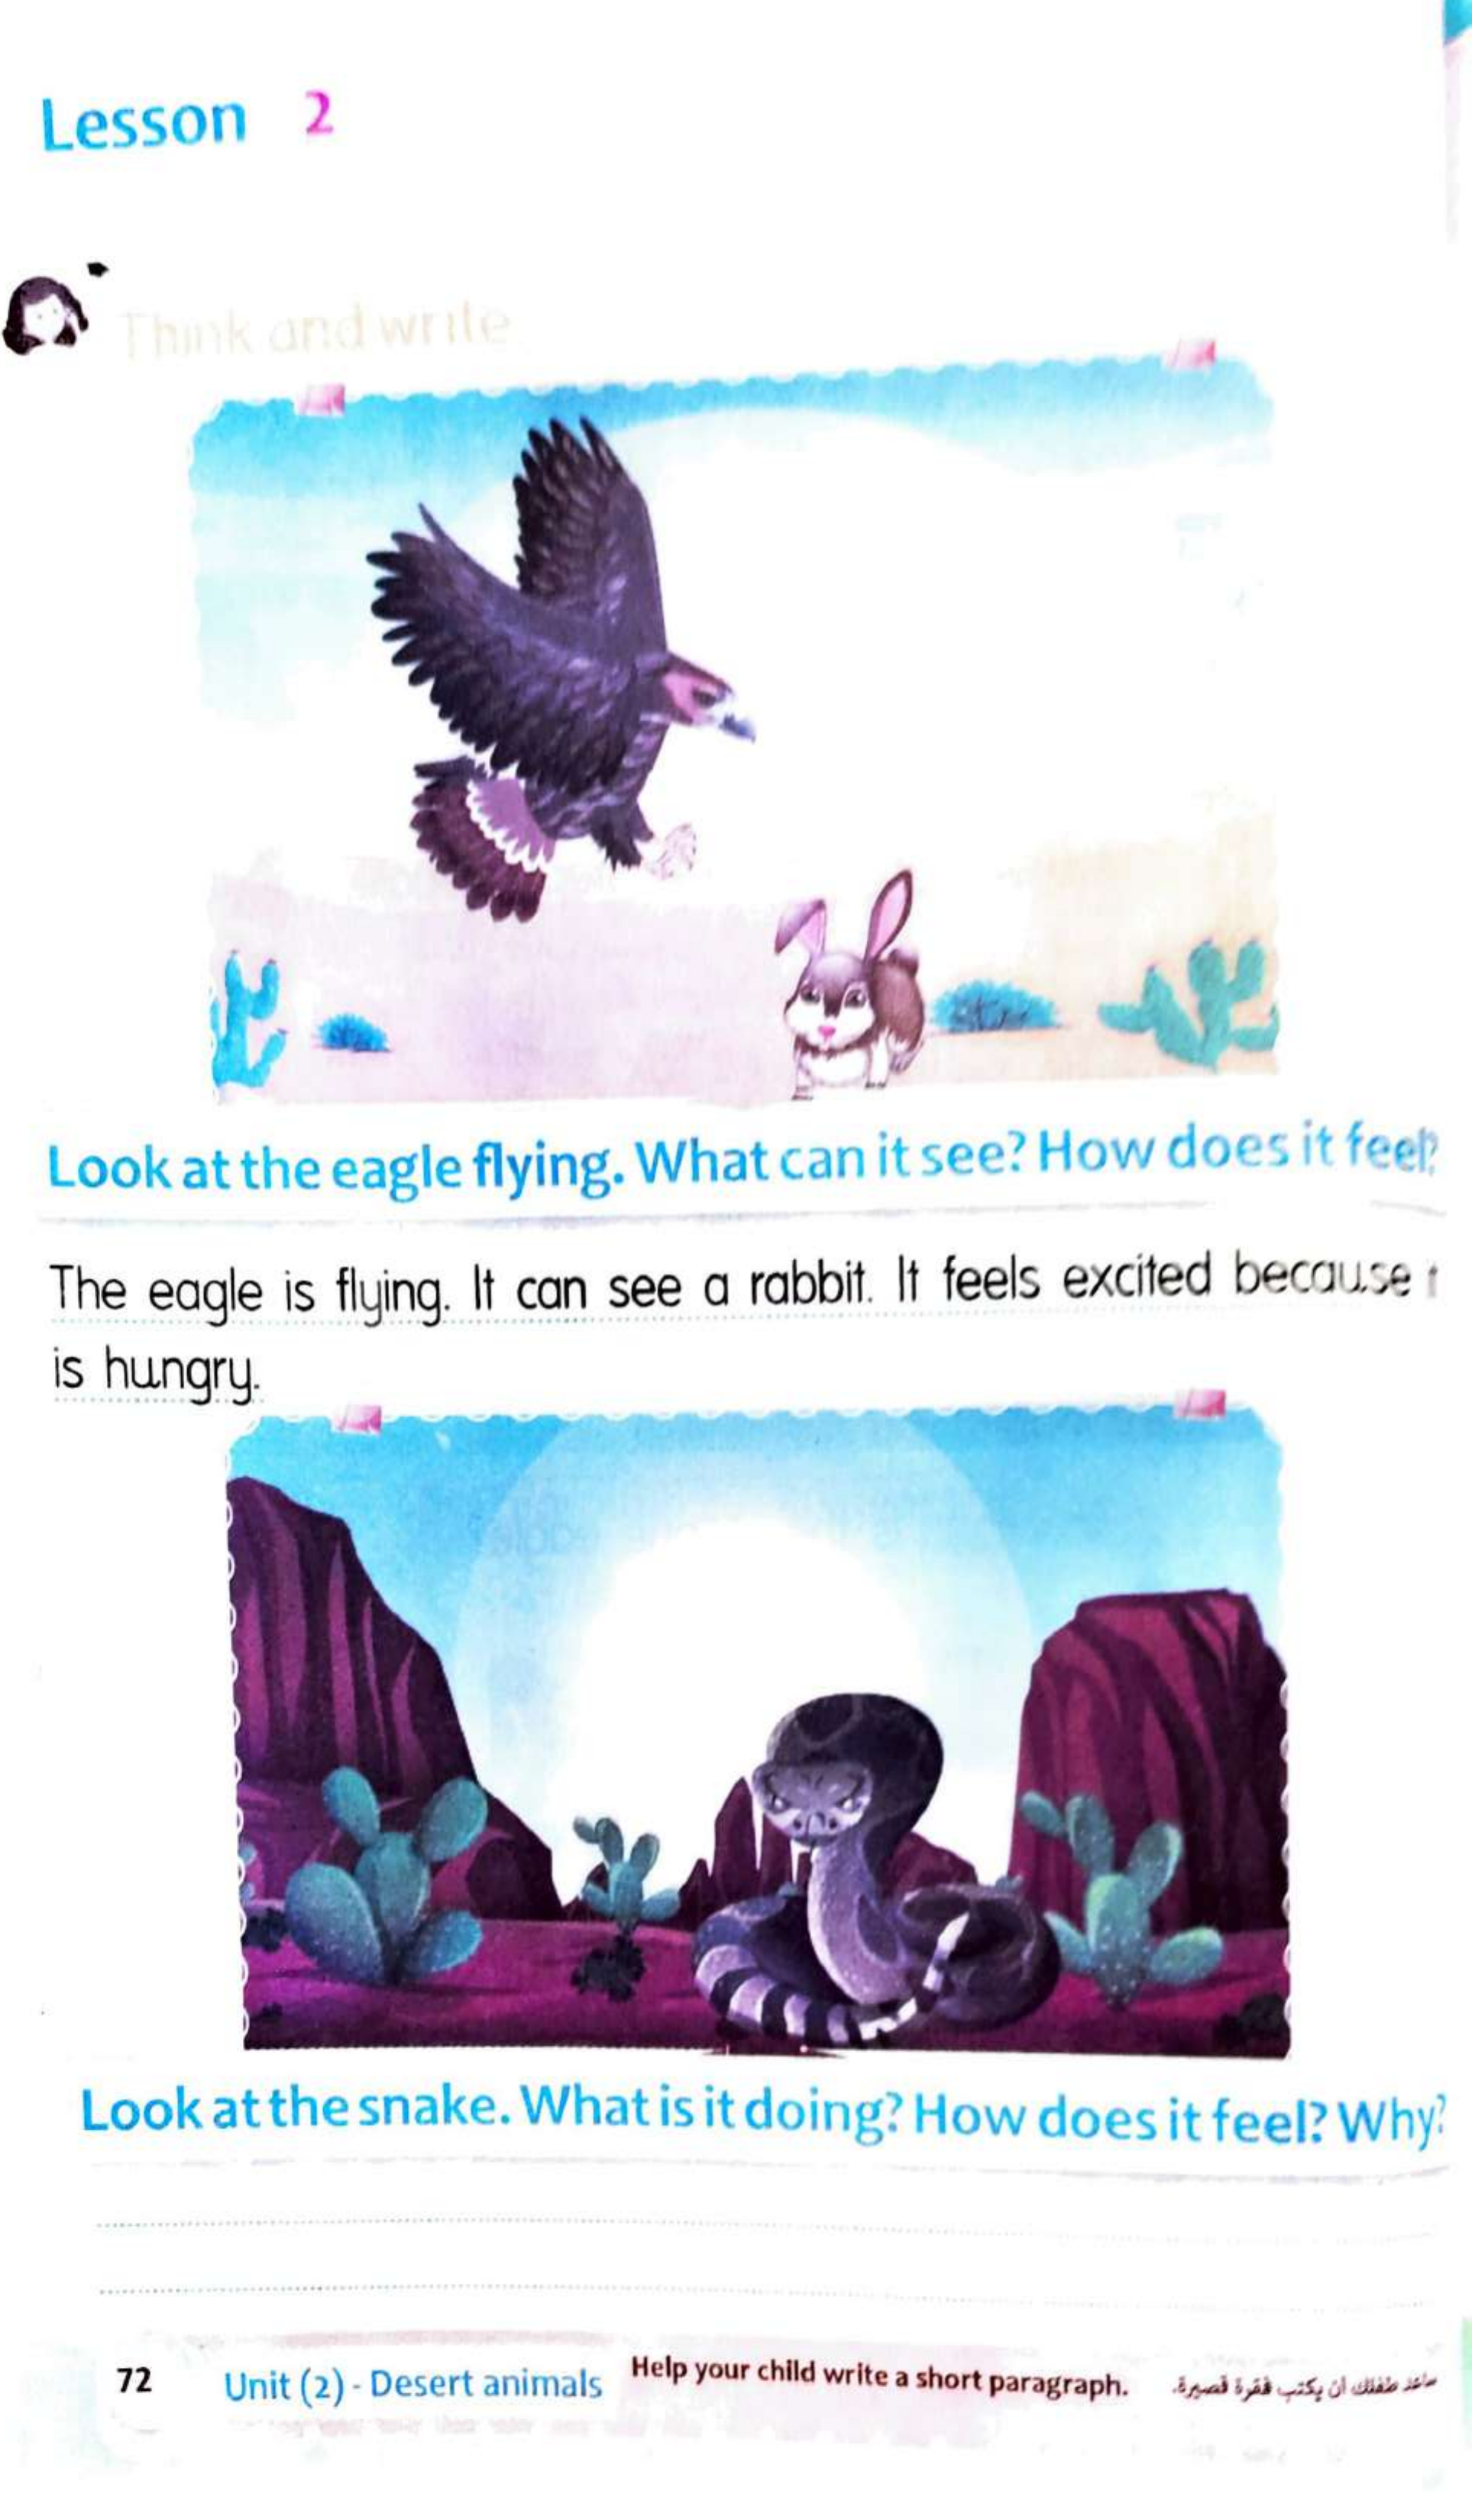 Lesson 2
Think and write
Look at the eagle flying. What can it see? How does it feel?
The eagle is flying. It can see a rabbit. It feels excited because
is hungry.
Look at the snake. What is it doing? How does it feel? Why?
72 Unit (2) - Desert animals Help your child write a short paragraph. ساعد طفلك أن يكتب فقرة قصيرة.